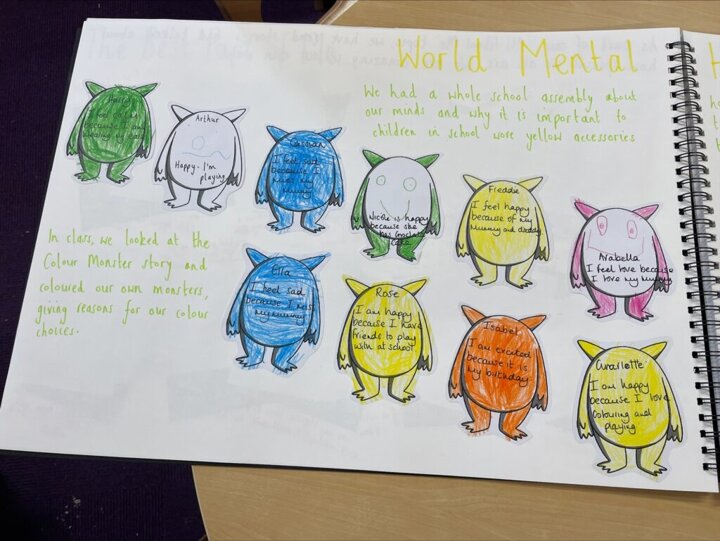 World Mental H
We had a whole school assembly about
our minds and why it is important to
children in school wore yellow accessories
Arthur
Happy - I'm
playing
I feel sad
because I
miss my
mummy
Nicole is happy
because she
has
cake
Freddie
I feel happy
because of my
mummy and daddy
Arabella
I feel love because
I love my mummy
In class, we looked at the
Colour Monster story and
coloured our own monsters,
giving reasons for our colour
choices.
Ella
I feel sad
because I miss
my mummy
Rose
I am happy
because I have
friends to play
with at school
Isabel
I am excited
because it is
my birthday
Charlotte
I am happy
because I love
colouring and
playing